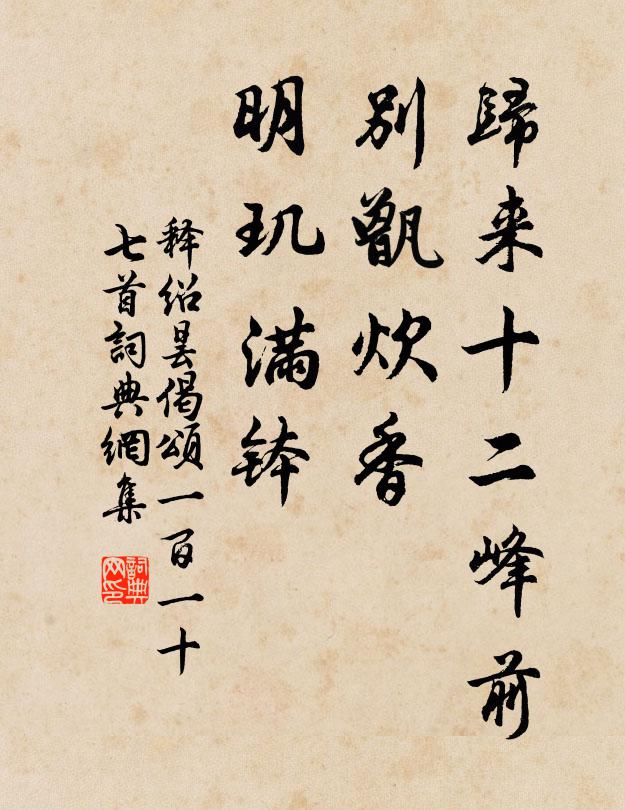 歸来十二峰前
别甑炊香
明玑满钵
释绍昙偈頌一百一十
七首詞典網集
詞典
网印